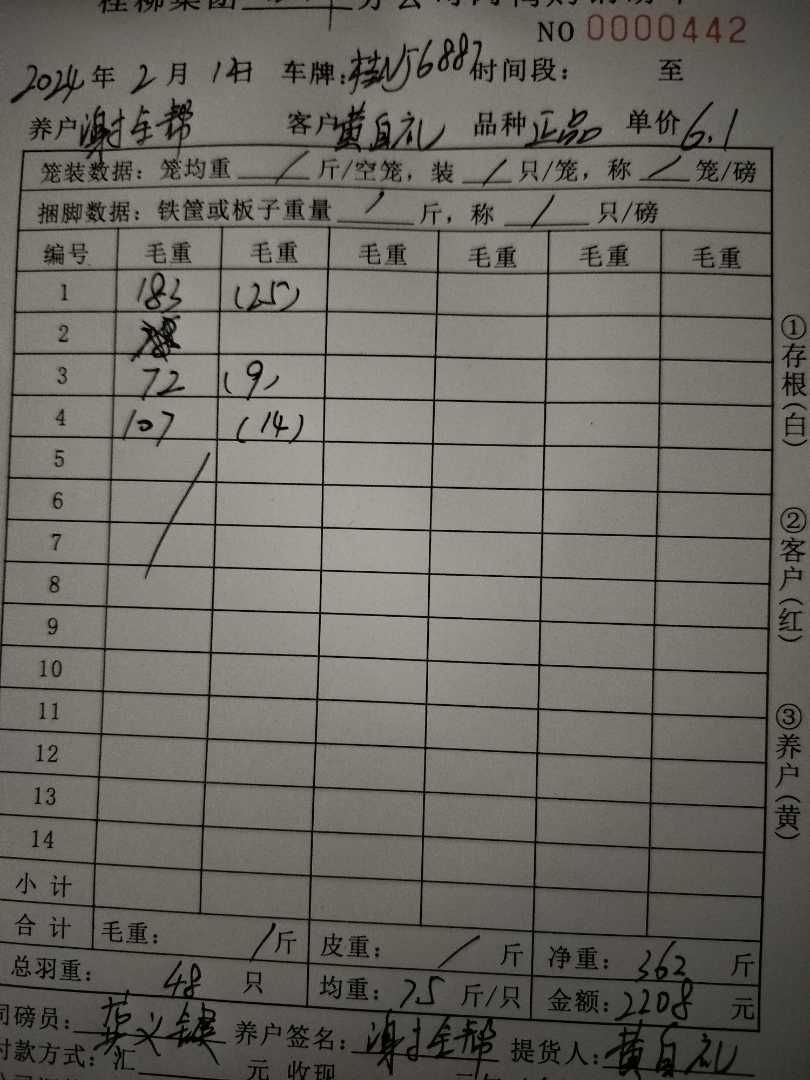 桂柳集团
NO 0000442
2024年2月1日 车牌:桂NJ6887 时间段: 至
养户谢全帮 客户黄自礼 品种正品 单价6.1
笼装数据:笼均重 / 斤/空笼,装 / 只/笼,称 / 笼/磅
捆脚数据:铁筐或板子重量 / 斤,称 / 只/磅
编号 毛重 毛重 毛重 毛重 毛重 毛重
1 183 (25)
2
3 72 (9)
4 107 (14)
5
6
7
8
9
10
11
12
13
14
小计
合计 毛重: / 斤 皮重: / 斤 净重: 362 斤
总羽重: 48 只 均重: 7.5 斤/只 金额: 2208 元
司磅员: 养户签名: 谢全帮 提货人: 黄自礼
付款方式:汇 元 收现
①存根(白)
②客户(红)
③养户(黄)